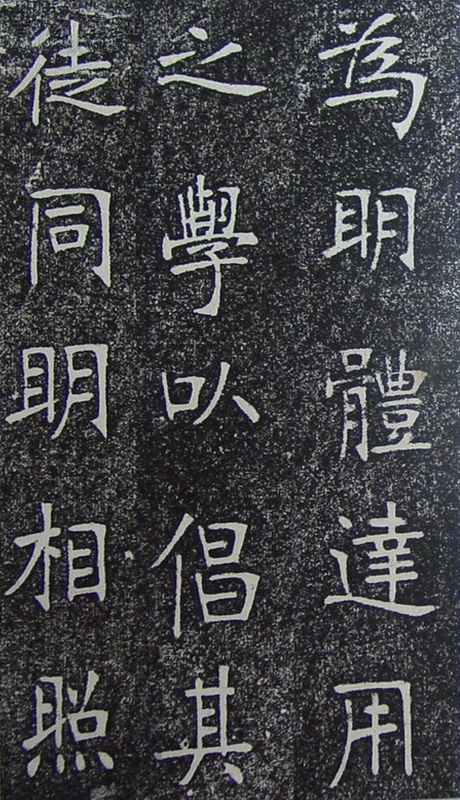 為明體達用
之學以倡其
徒同明相照